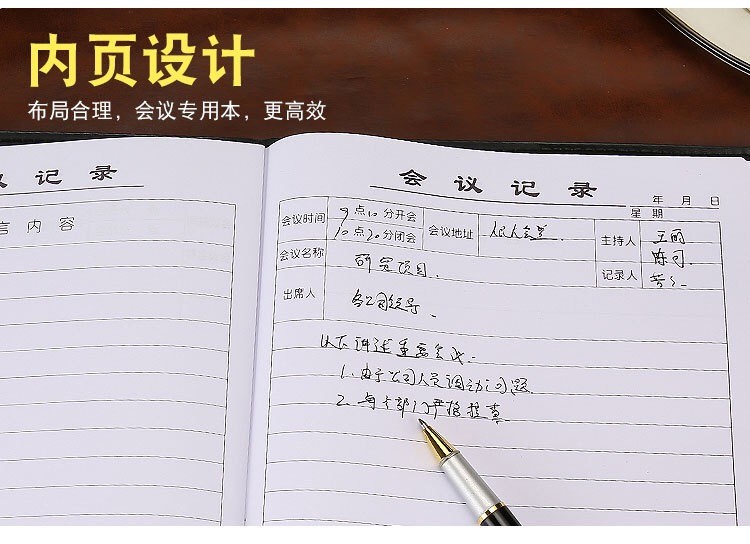 内页设计
布局合理，会议专用本，更高效
议记录
言内容
会议记录
年 月 日
星 期
会议时间 9点10分开会 会议地址 人民会堂. 主持人 王丽
10点30分闭会 陈司.
会议名称 研究项目. 记录人
出席人 各公司领导.
以下讲述重要会议.
1. 由于公司人员调动问题
2. 每个部门严格搜查